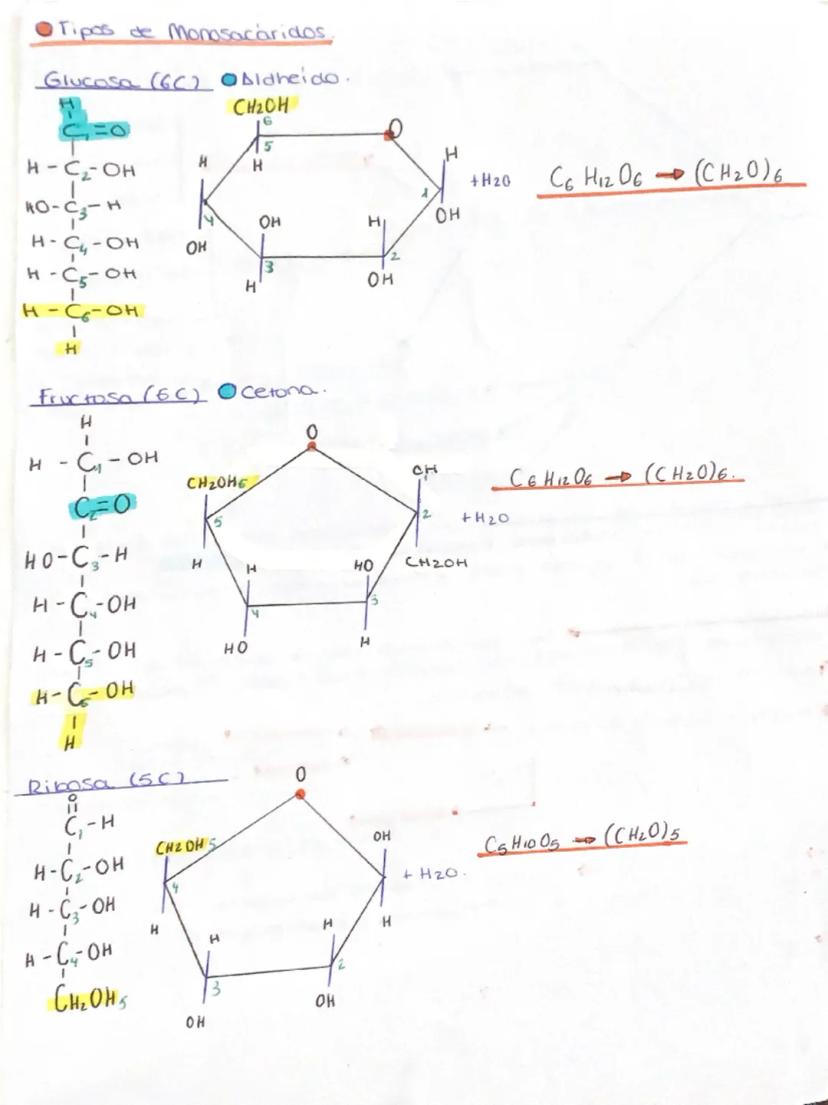 Tipos de Monosacáridos.
Glucosa (6C) Aldheído.
H
C1=O
H-C2-OH
HO-C3-H
H-C4-OH
H-C5-OH
H-C6-OH
H
CH2OH
6
5
O
H
H
H
4
1
+H2O
OH
OH
OH
H
3
2
H
OH
C6 H12 O6 → (CH2O)6
Fructosa (6C) Cetona.
H
H-C1-OH
C2=O
HO-C3-H
H-C4-OH
H-C5-OH
H-C6-OH
H
O
CH2OH6
OH
5
2
+H2O
H
H
HO
CH2OH
4
3
HO
H
C6H12O6 → (CH2O)6.
Ribosa (5C)
O
C1-H
H-C2-OH
H-C3-OH
H-C4-OH
CH2OH5
O
CH2OH5
OH
4
+H2O.
H
H
H
H
3
2
OH
OH
C5H10O5 → (CH2O)5